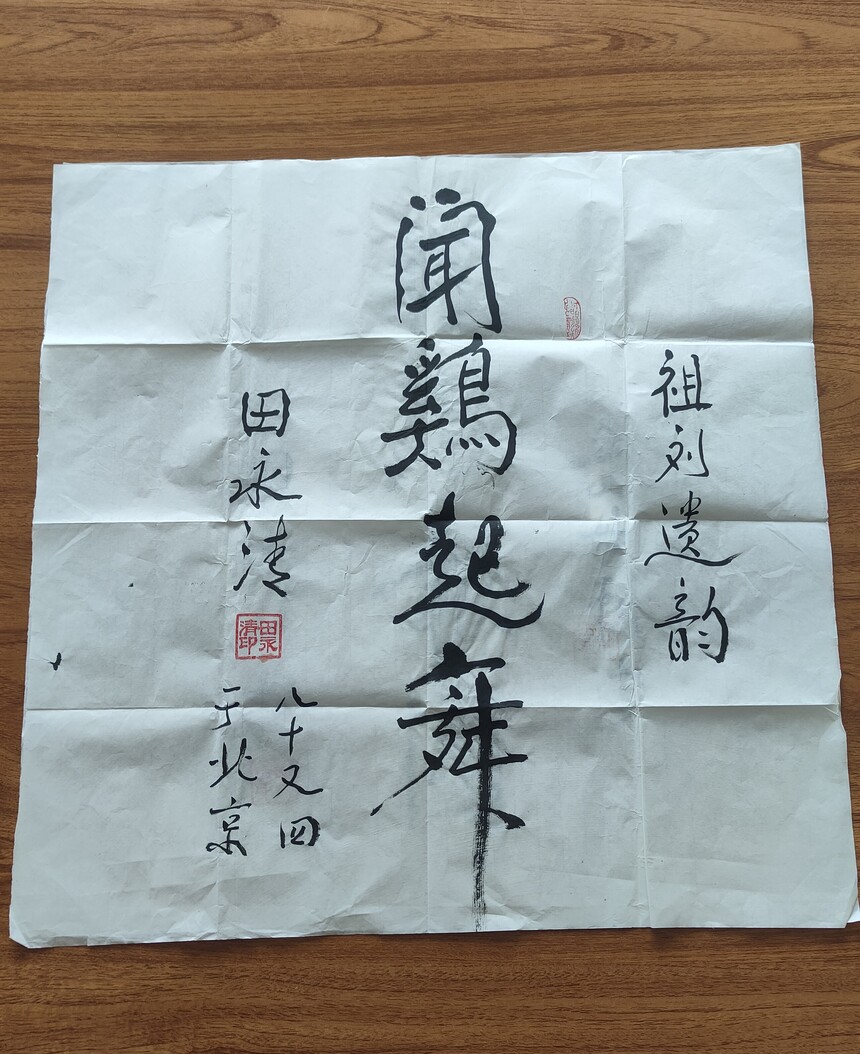 祖刘遗韵
闻鷄起舞
田永清
田永清印
八十又四
于北京